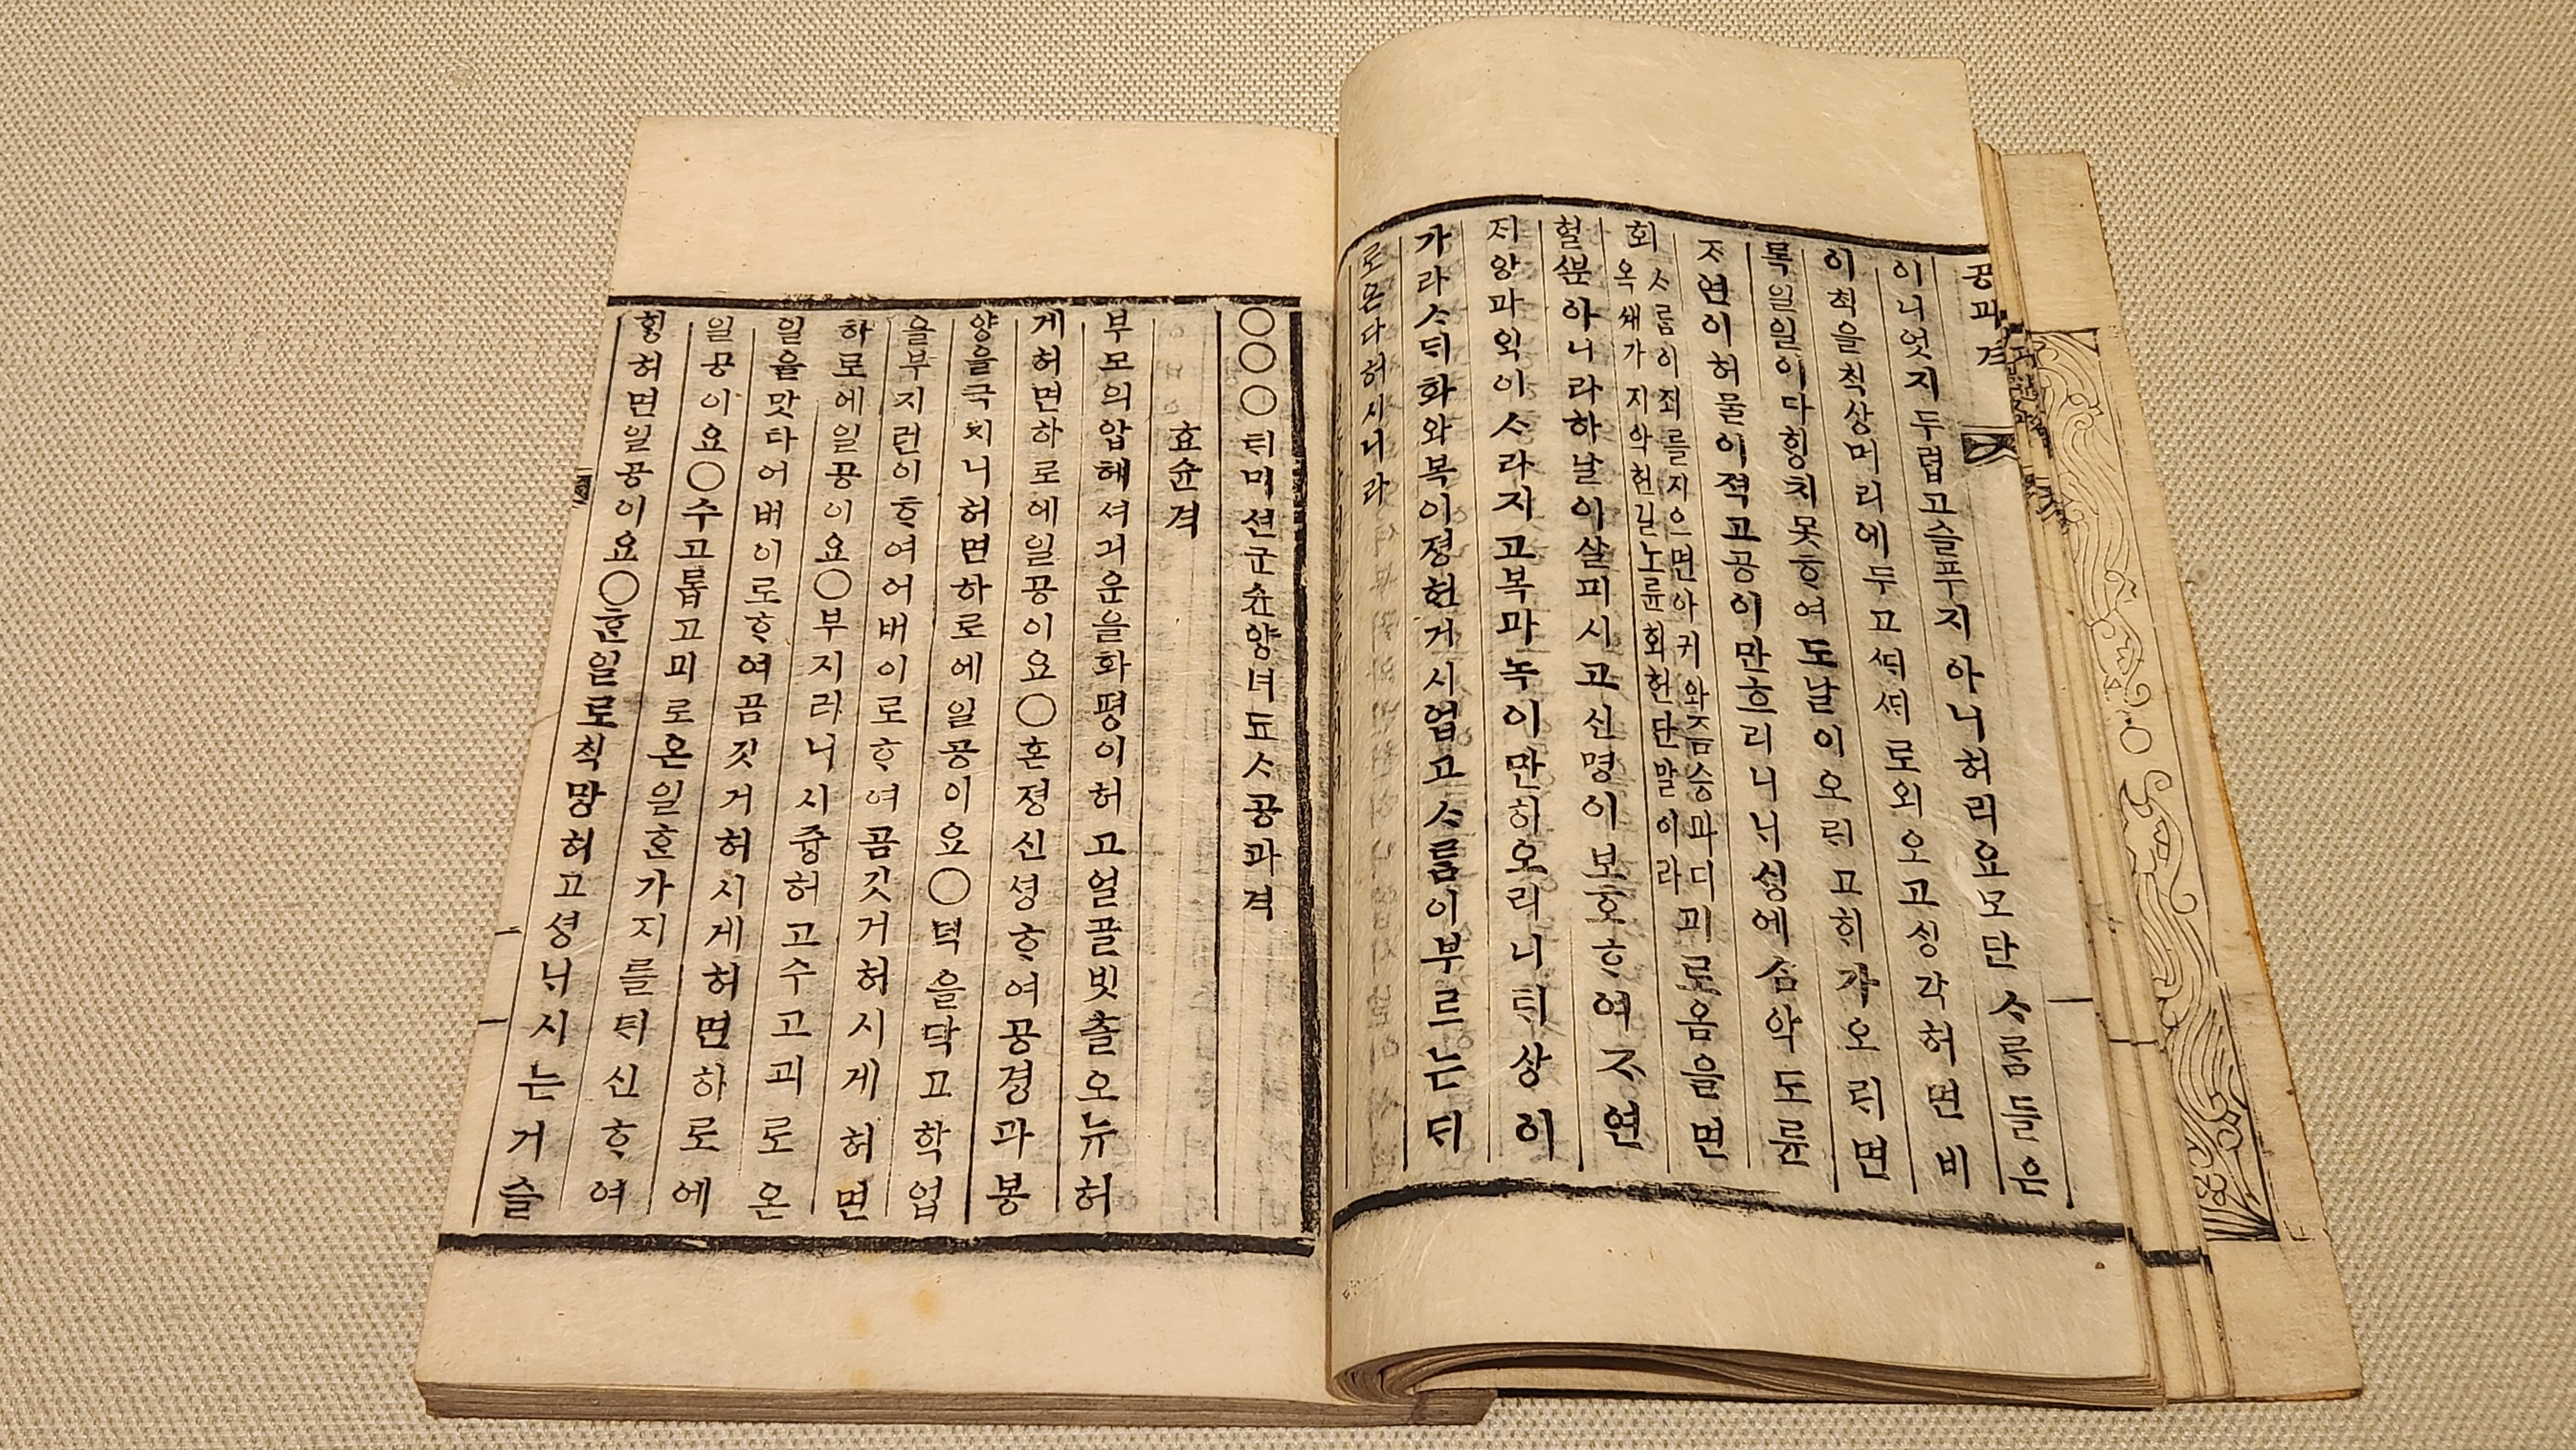 공과격
이니엇지두렵고슬푸지아니허리요모단ᄉᆞᄅᆞᆷ들은
이ᄎᆡᆨ을ᄎᆡᆨ상머리에두고ᄯᆡᄯᆡ로외오고ᄉᆡᆼ각허면비
록일일이다ᄒᆡᆼ치못ᄒᆞ여도날이오ᄅᆡ고ᄒᆡ가오ᄅᆡ면
ᄌᆞ연이허물이젹고공이만흐리니ᄂᆡᄉᆡᆼ에ᄉᆞᆷ악도륜
회
ᄉᆞᄅᆞᆷ이죄를지으면아귀와즘승과디
옥세가지악헌길노륜회헌단말이라
괴로옴을면
헐ᄲᅮᆫ아니라하날이살피시고신명이보호ᄒᆞ여ᄌᆞ연
ᄌᆡ앙과ᄋᆡᆨ이ᄉᆞ라지고복과녹이만허오리니ᄐᆡ상이
가라ᄉᆞᄃᆡ화와복이졍헌거시업고ᄉᆞᄅᆞᆷ이부르ᄂᆞᆫᄃᆡ
로온다허시니라
○○○ᄐᆡ미션군슌양녀됴ᄉᆞ공과격
효슌격
부모의압헤셔긔운을화평이허고얼골빗츨오뉴허
게허면하로에일공이요○혼졍신셩ᄒᆞ여공경과봉
양을극치니허면하로에일공이요○덕을닥고학업
을부지런이ᄒᆞ여어버이로ᄒᆞ여곰깃거허시게허면
하로에일공이요○부지라ᄂᆡ시즁허고수고괴로온
일을맛타어버이로ᄒᆞ여곰깃거허시게허면하로에
일공이요○수고롭고괴로온일ᄒᆞᆫ가지를ᄃᆡ신ᄒᆞ여
ᄒᆡᆼ허면일공이요○ᄒᆞᆫ일로ᄎᆡᆨ망허고셩ᄂᆡ시는거슬